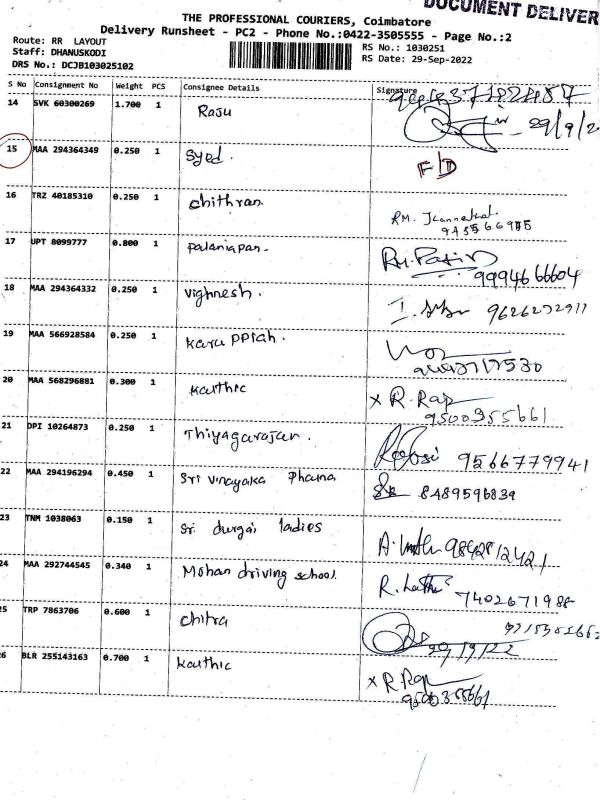 DOCUMENT DELIVER
THE PROFESSIONAL COURIERS, Coimbatore
Delivery Runsheet - PC2 - Phone No.:0422-3505555 - Page No.:2
Route: RR LAYOUT
Staff: DHANUSKODI
DRS No.: DCJB103025102
RS No.: 1030251
RS Date: 29-Sep-2022
S No Consignment No Weight PCS Consignee Details Signature
14 SVK 60300269 1.700 1 Raju 29/9/2
15 MAA 294364349 0.250 1 Syed. F/D
16 TRZ 40185310 0.250 1 chithran RM.
17 UPT 8099777 0.800 1 palaniapan. 9994666604
18 MAA 294364332 0.250 1 vighnesh. 9626232911
19 MAA 566928584 0.250 1 karuppiah.
20 MAA 568296881 0.300 1 karthic x R. Raja 9500355661
21 DPI 10264873 0.250 1 Thiyagarajan. 9566779941
22 MAA 294196294 0.450 1 Sri vinayaka Phama 8489596839
23 TNM 1038063 0.150 1 Sri durgai ladies 9842812421
24 MAA 292744545 0.340 1 Mohan driving school. R. Latha 7402671988
25 TRP 7863706 0.600 1 chitra 29/9/22
26 BLR 255143163 0.700 1 karthic x R. Raja 9500355661